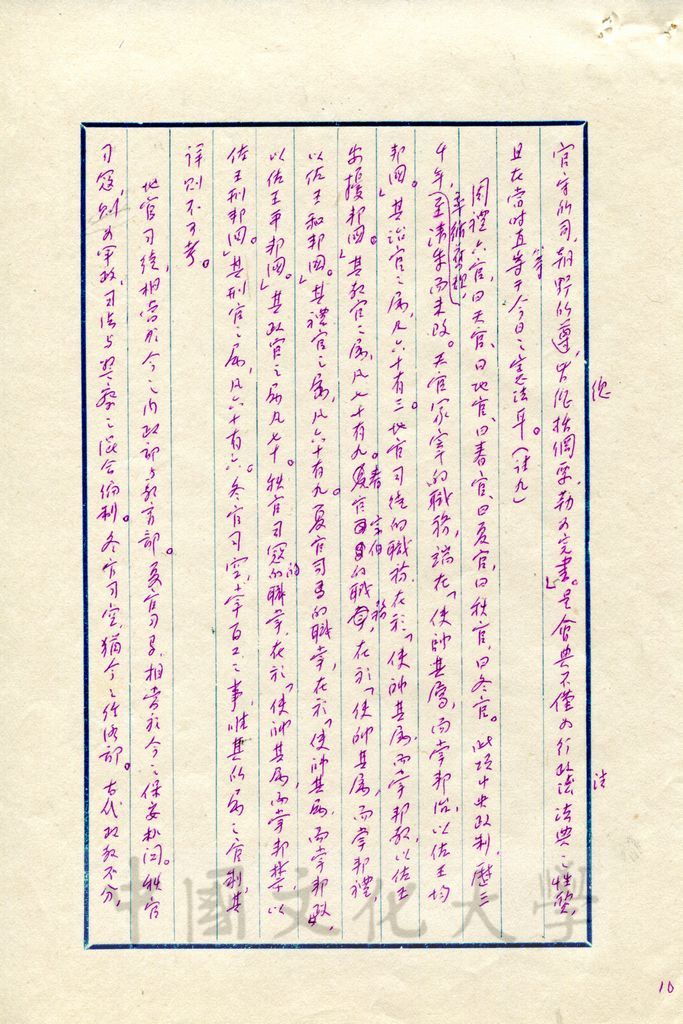 官守的司,朝野的遵,皆作提綱挈,勒為完書」。是會典不僅為行政諸法典之性質,
且在當時直等于今日之憲法耳。(註九)
周禮六官,曰天官,曰地官,曰春官,曰夏官,曰秋官,曰冬官。此項中央政制,歷三
千年至清末而未改。天官冢宰的職務,端在「使帥其屬,而掌邦治,以佐王均
邦國」其治官之屬,凡六十有三。地官司徒的職務,在於「使帥其屬,而掌邦教,以佐王
安擾邦國」其教官之屬,凡七十有九。春官宗伯的職務,在於「使帥其屬,而掌邦禮,
以佐王和邦國」。其禮官之屬,凡六十有九。夏官司馬的職掌,在於「使帥其屬,而掌邦政,
以佐王平邦國」。其政官之屬凡七十。秋官司寇的職掌,在於「使帥其屬,而掌邦禁,以
佐王刑邦國」。其刑官之屬,凡六十有六。冬官司空,掌百工之事,惟其所屬之官制,其
詳則不可考。
地官司徒,相當於今之內政部與教育部。夏官司馬,相當於今之保安機關。秋官
司寇,則為軍政,司法與警察之混合編制。冬官司空,猶今之經濟部。古代政教不分,
中國文化大學
10